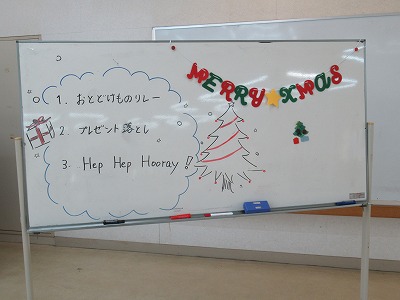 MERRY★XMAS
1. おとどけものリレー
2. プレゼント落とし
3. Hep Hep Hooray!!